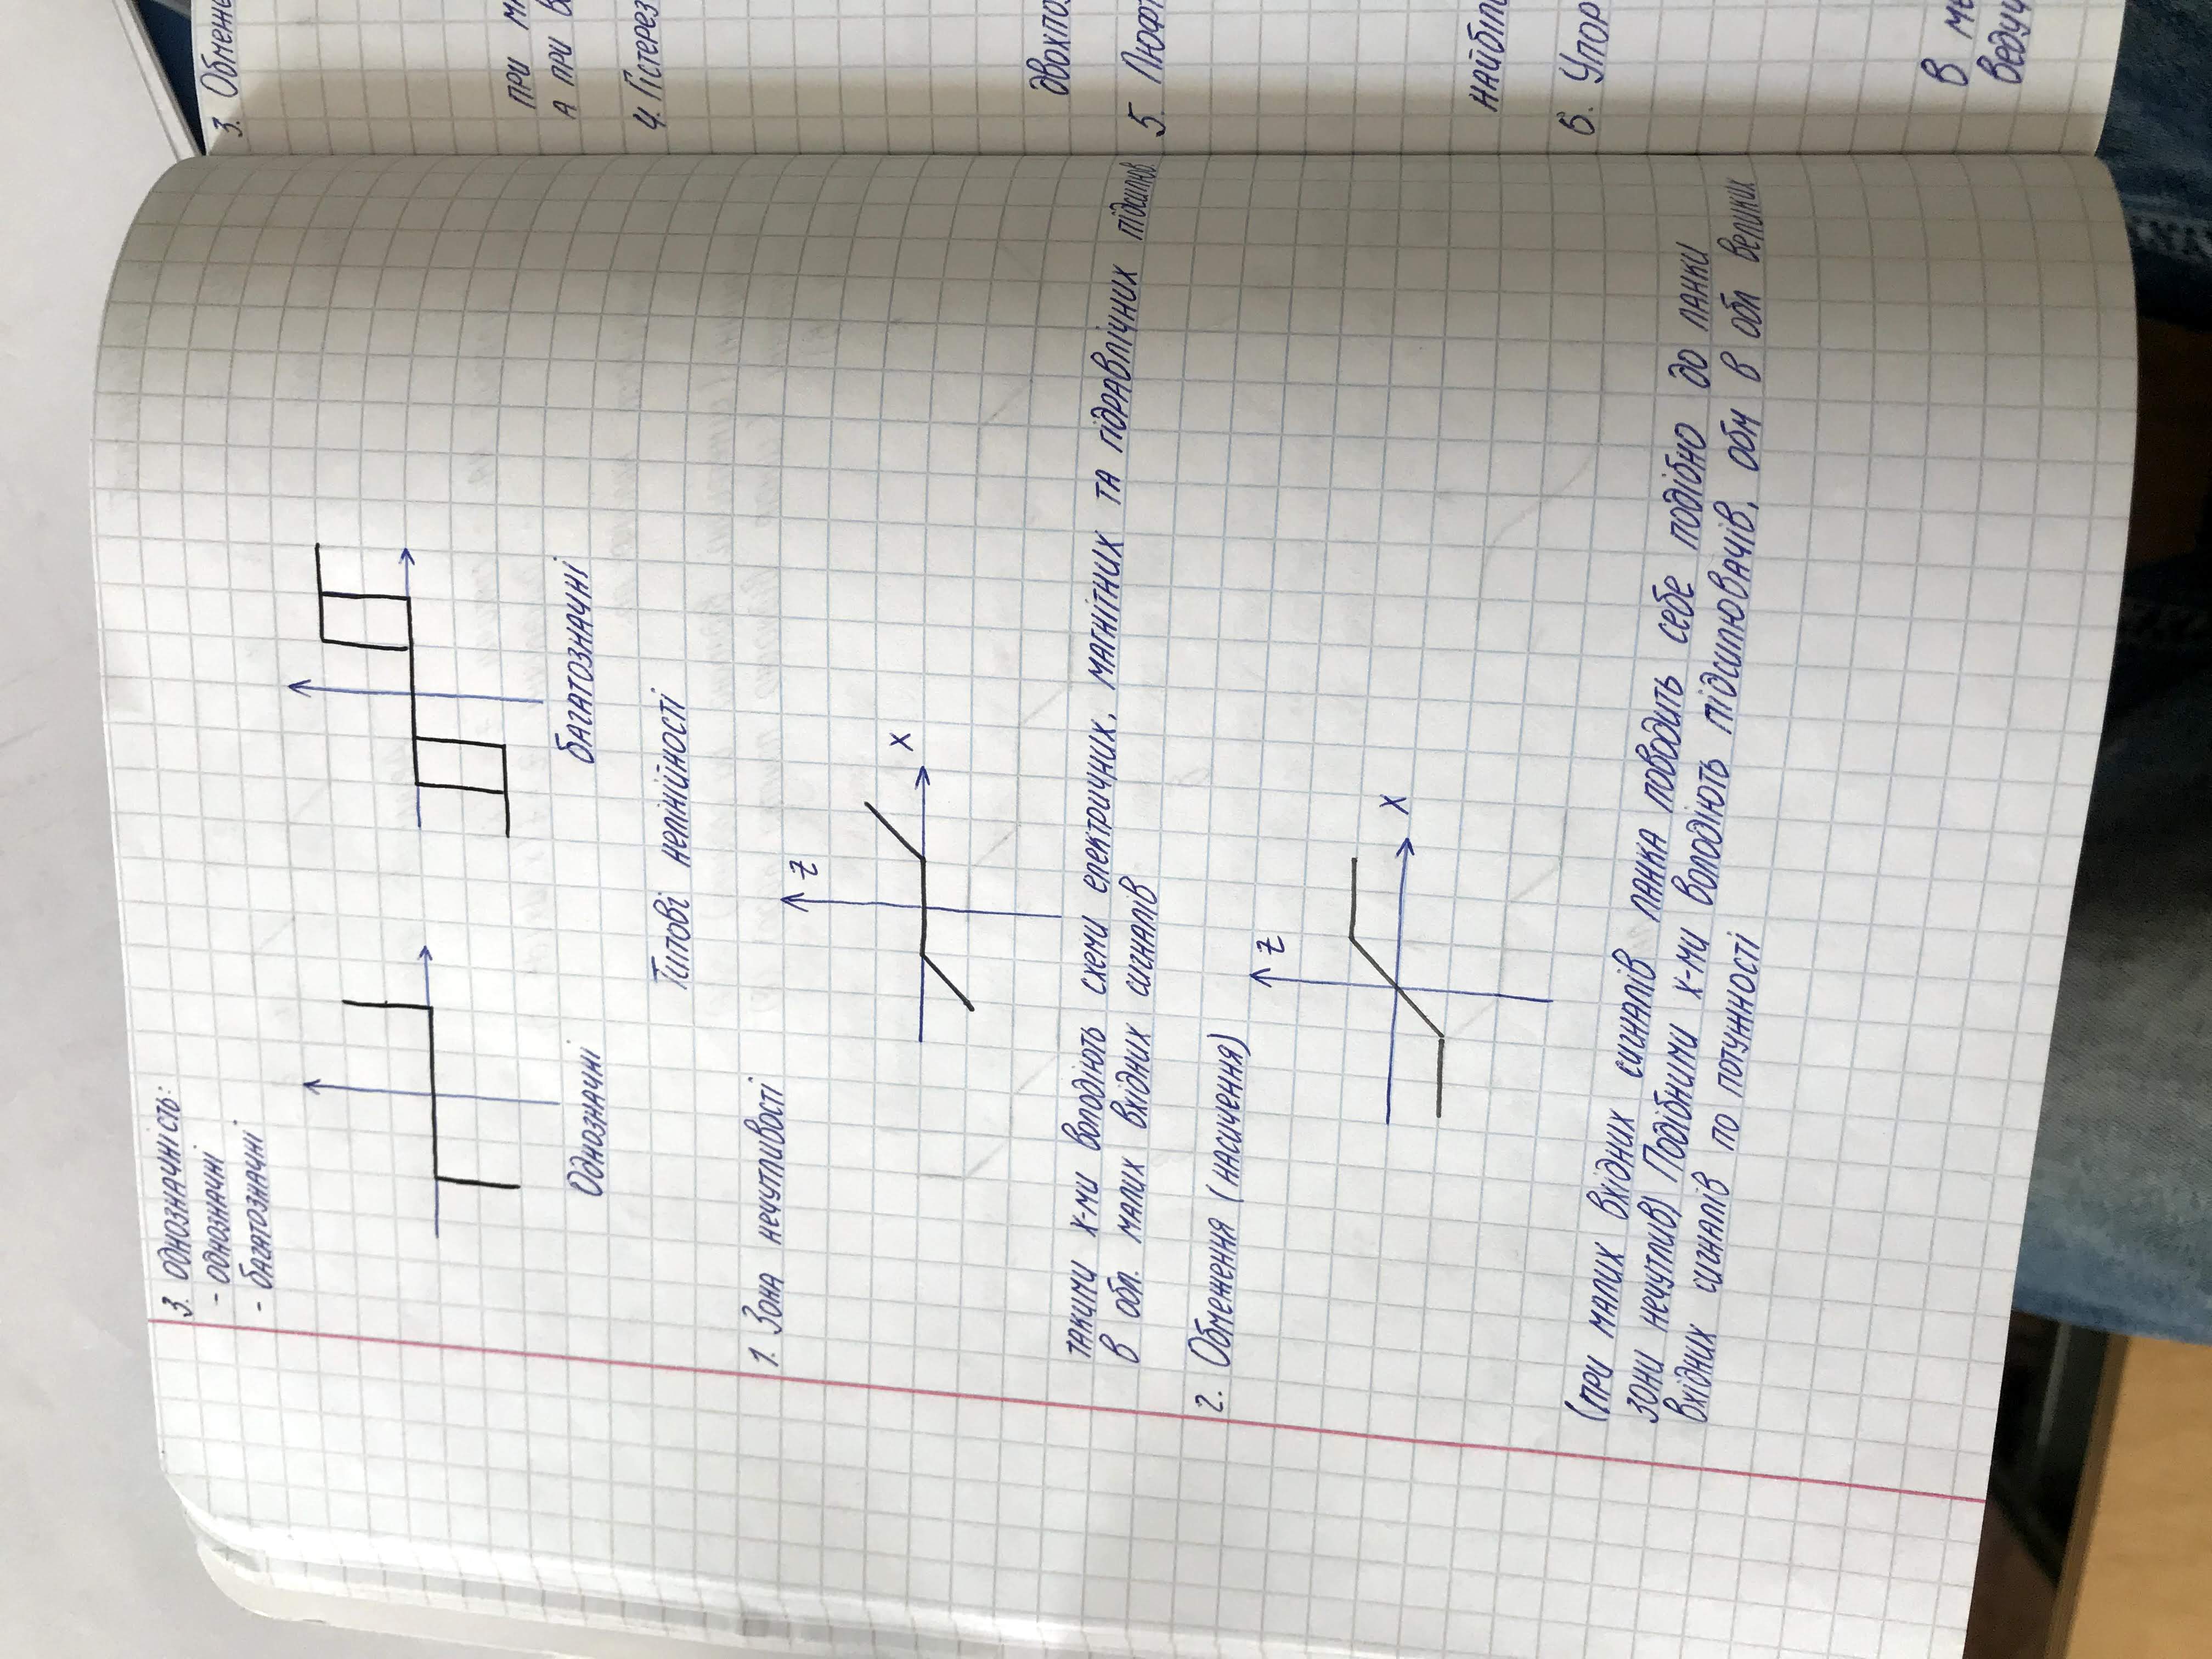 3. Однозначність:
- однозначні
- багатозначні
Однозначні
багатозначні
Типові нелінійності
1. Зона нечутливості
z
x
такими х-ми володіють схеми електричних, магнітних та гідравлічних підсилюв.
в обл. малих вхідних сигналів
2. Обмеження (насичення)
z
x
(при малих вхідних сигналів ланка поводить себе подібно до ланки
зони нечутлив) Подібними х-ми володіють підсилювачів, обм в обл великих
вхідних сигналів по потужності
3. Обмеже
при ма
а при в
4. Гістерез
двохпоз
5. Люфт
найбіль
6. Упор
в ме
ведуч